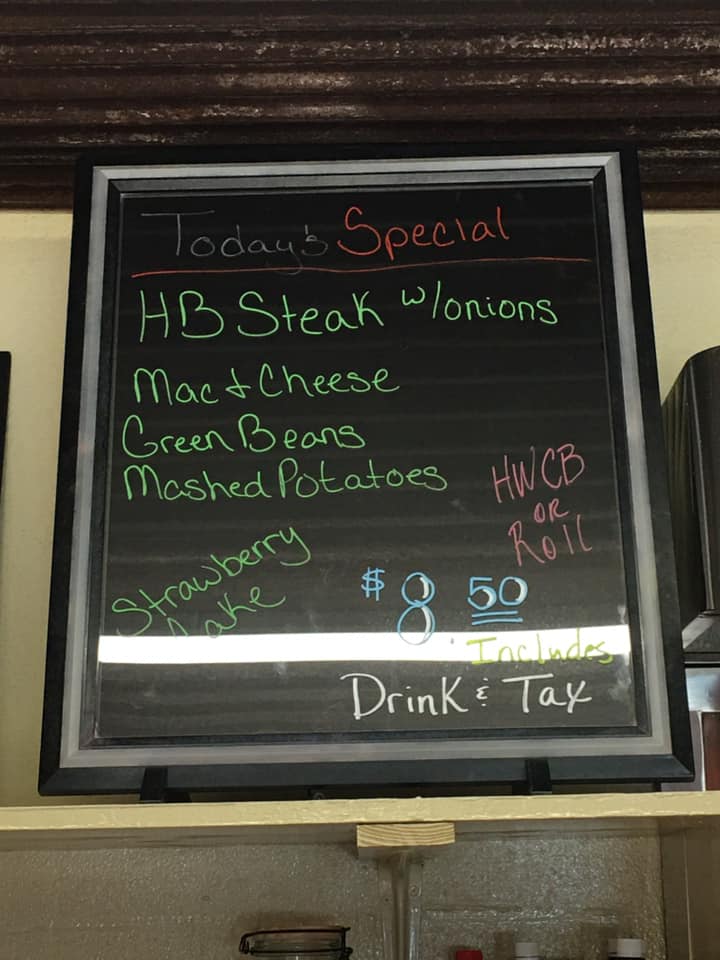 Today's Special
HB Steak w/onions
Mac & Cheese
Green Beans
Mashed Potatoes
HWCB
OR
Roll
Strawberry
Cake
$8.50
Includes
Drink & Tax